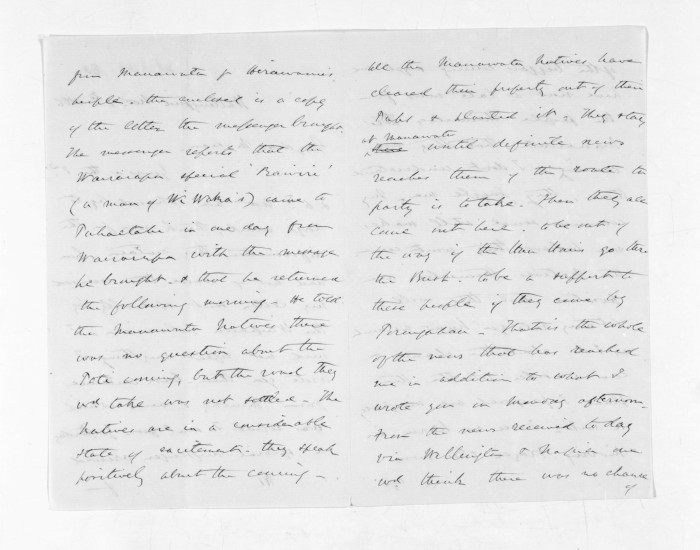 from Manawatu for Hirawanu's
people. The enclosed is a copy
of the letter the messenger brought.
The messenger reports that the
Wairarapa special 'Rawiri'
(a man of Wi Waka's) came to
Puhaetahi in one day from
Wairarapa with the message
he brought. & that he returned
the following morning - He told
the Manawatu Natives there
was no question about the
Pote coming, but the road they
wd take was not settled - The
Natives are in a considerable
state of excitement. They speak
positively about the coming -
All the Manawatu Natives have
cleared their property out of their
Pahs & planted it - They stay
at Manawatu
until definite news
reaches them of the route the
party is to take. Then they all
come out here. to be out of
the way if the Hau Haus go thro
the Bush. to be a support to
these people if they come by
Porangahau - That is the whole
of the news that has reached
me in addition to what I
wrote you on Monday afternoon.
From the news received to day
via Wellington & Napier one
wd think there was no chance
of